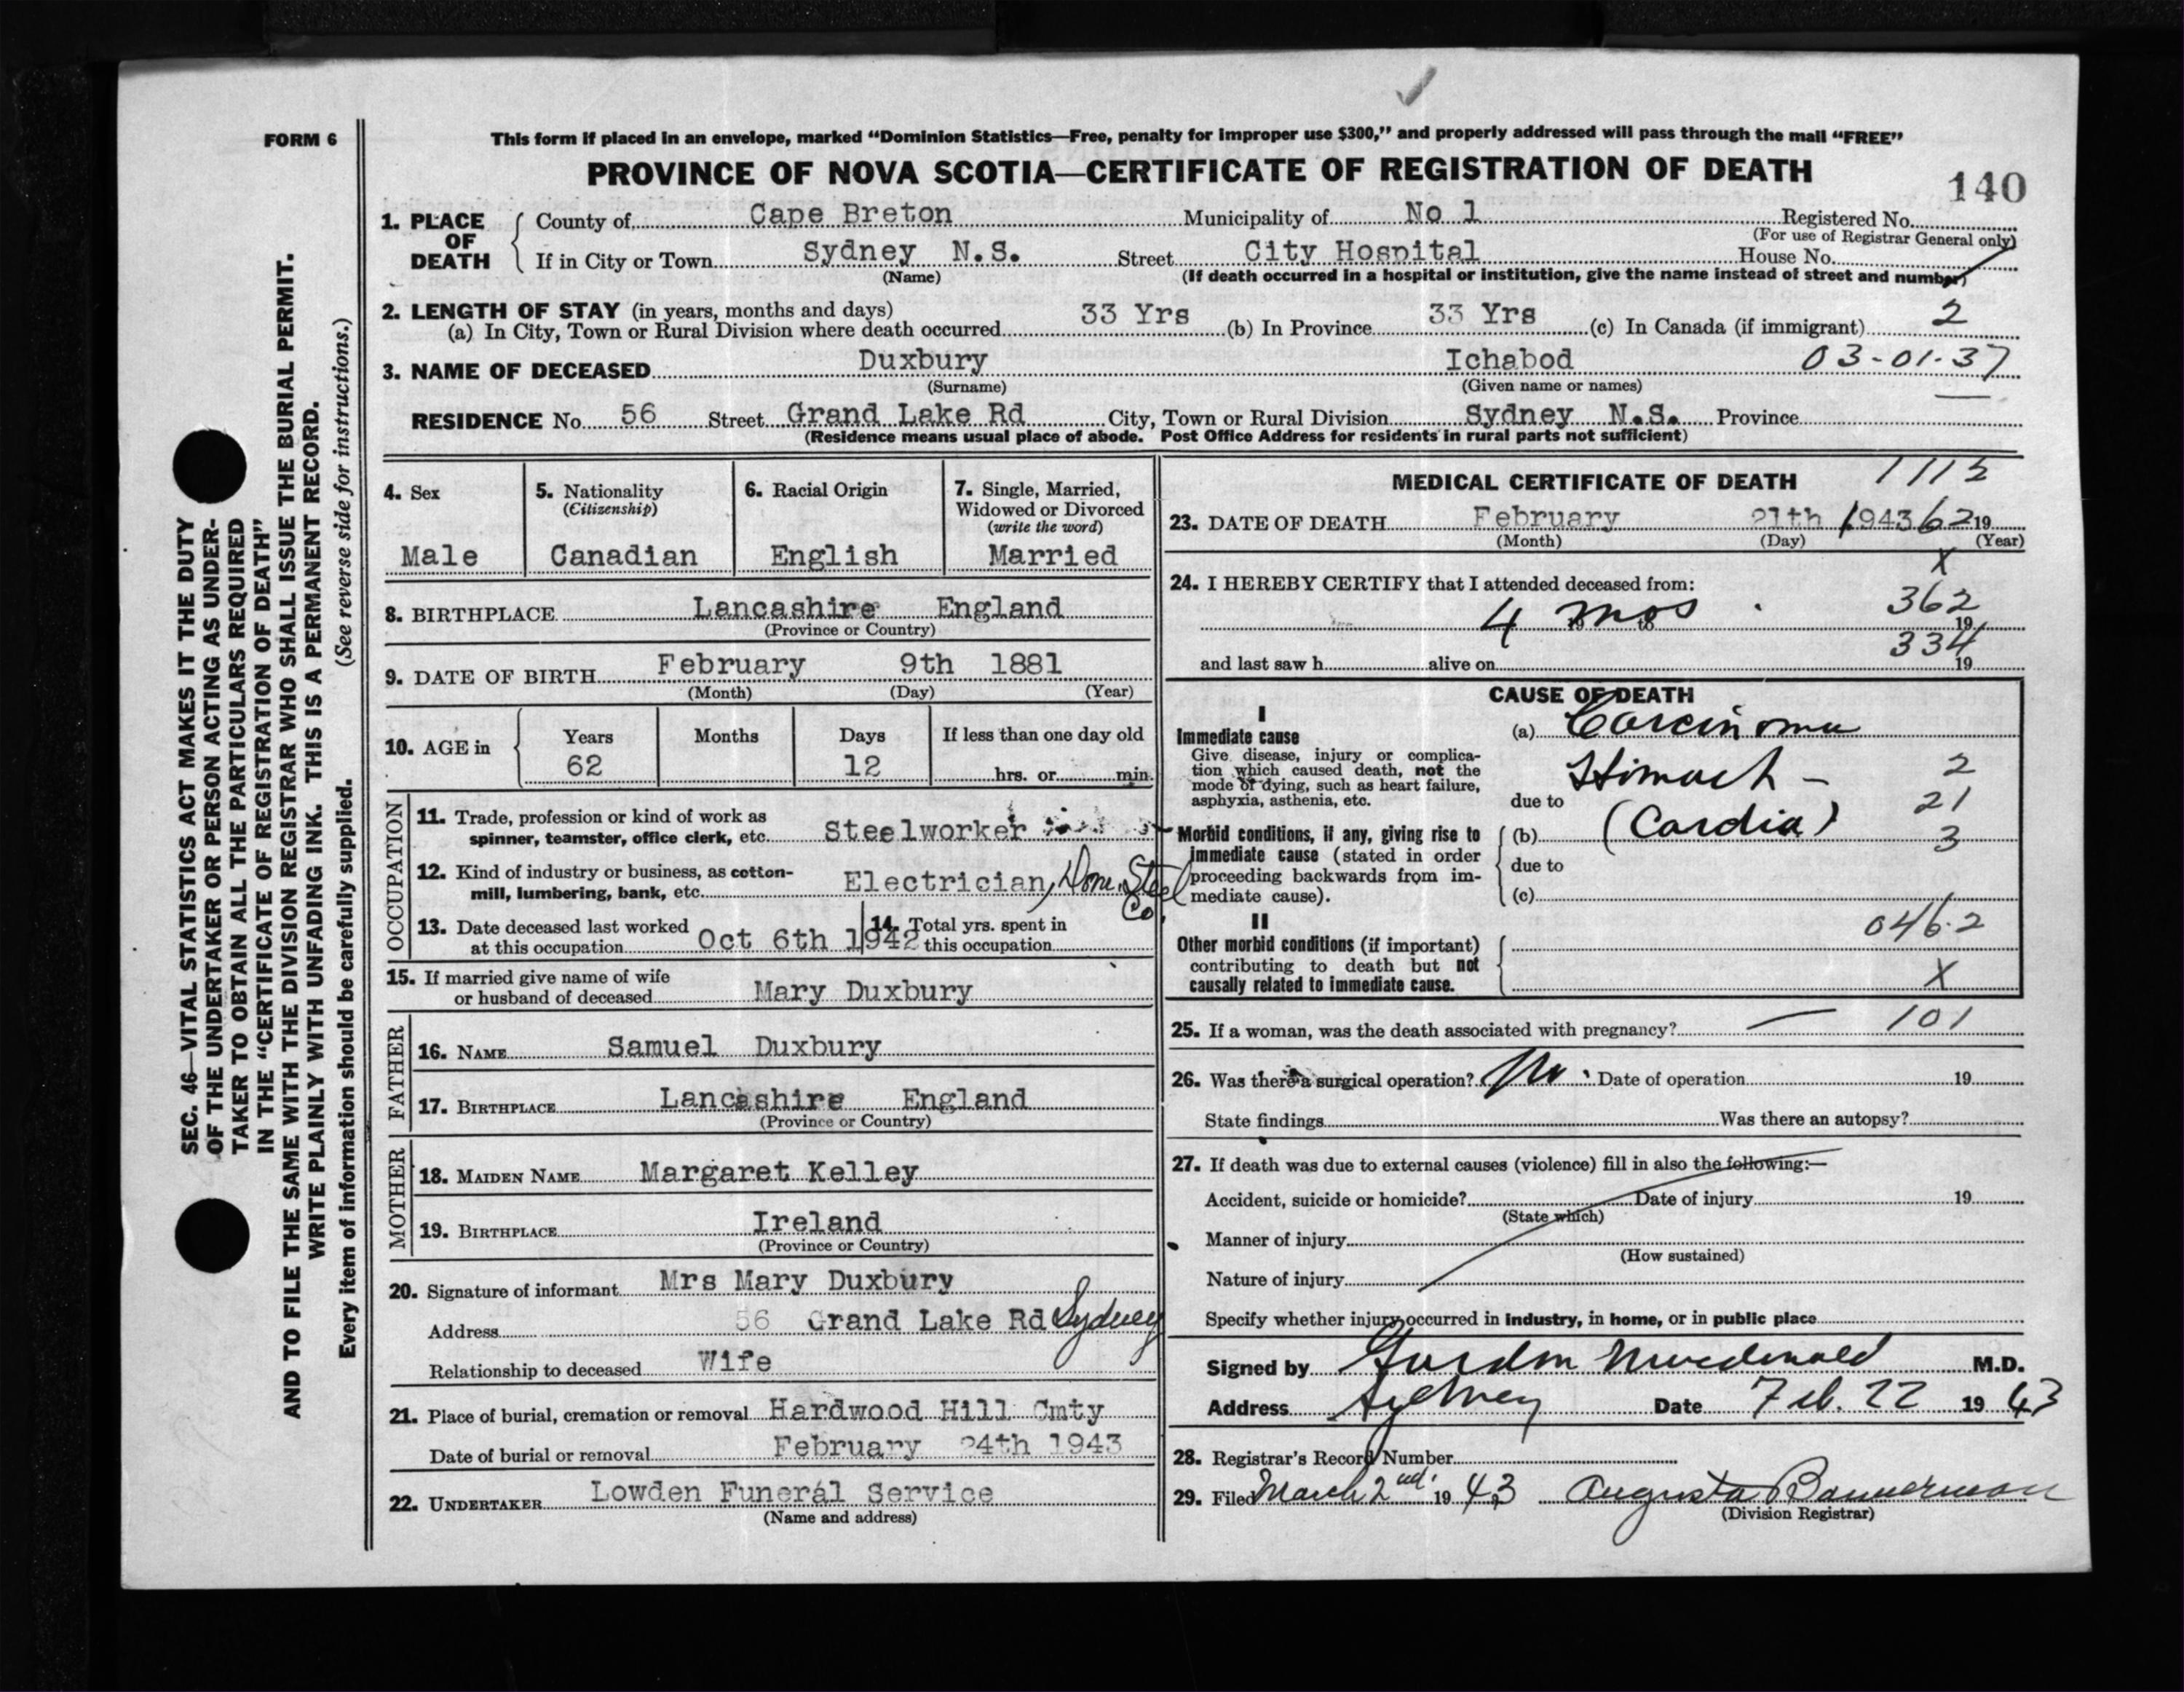 FORM 6
This form if placed in an envelope, marked “Dominion Statistics—Free, penalty for improper use $300,” and properly addressed will pass through the mail “FREE”
PROVINCE OF NOVA SCOTIA—CERTIFICATE OF REGISTRATION OF DEATH
140
1. PLACE OF DEATH
County of Cape Breton Municipality of No 1 Registered No.
(For use of Registrar General only)
If in City or Town Sydney N.S. Street City Hospital House No.
(Name) (If death occurred in a hospital or institution, give the name instead of street and number)
2. LENGTH OF STAY (in years, months and days)
(a) In City, Town or Rural Division where death occurred 33 Yrs (b) In Province 33 Yrs (c) In Canada (if immigrant) 2
3. NAME OF DECEASED Duxbury Ichabod 03-01-37
(Surname) (Given name or names)
RESIDENCE No. 56 Street Grand Lake Rd City, Town or Rural Division Sydney N.S. Province
(Residence means usual place of abode. Post Office Address for residents in rural parts not sufficient)
4. Sex
Male
5. Nationality
(Citizenship)
Canadian
6. Racial Origin
English
7. Single, Married,
Widowed or Divorced
(write the word)
Married
8. BIRTHPLACE Lancashire England
(Province or Country)
9. DATE OF BIRTH February 9th 1881
(Month) (Day) (Year)
10. AGE in
Years Months Days If less than one day old
62 12 hrs. or min.
OCCUPATION
11. Trade, profession or kind of work as
spinner, teamster, office clerk, etc. Steelworker
12. Kind of industry or business, as cotton-
mill, lumbering, bank, etc. Electrician, Dom. Steel Co.
13. Date deceased last worked
at this occupation Oct 6th 1942
14. Total yrs. spent in
this occupation
15. If married give name of wife
or husband of deceased Mary Duxbury
FATHER
16. NAME Samuel Duxbury
17. BIRTHPLACE Lancashire England
(Province or Country)
MOTHER
18. MAIDEN NAME Margaret Kelley
19. BIRTHPLACE Ireland
(Province or Country)
20. Signature of informant Mrs Mary Duxbury
Address 56 Grand Lake Rd Sydney
Relationship to deceased Wife
21. Place of burial, cremation or removal Hardwood Hill Cmty
Date of burial or removal February 24th 1943
22. UNDERTAKER Lowden Funeral Service
(Name and address)
MEDICAL CERTIFICATE OF DEATH 1112
23. DATE OF DEATH February 21th 1943 62 19
(Month) (Day) (Year)
X
24. I HEREBY CERTIFY that I attended deceased from:
362
4 mos to 19
334
and last saw h alive on 19
CAUSE OF DEATH
I
Immediate cause
Give disease, injury or complica-
tion which caused death, not the
mode of dying, such as heart failure,
asphyxia, asthenia, etc.
(a) Carcinoma
Stomach – 2
due to 21
Morbid conditions, if any, giving rise to
immediate cause (stated in order
proceeding backwards from im-
mediate cause).
(b) (Cardia) 3
due to
(c)
II
Other morbid conditions (if important)
contributing to death but not
causally related to immediate cause.
046.2
X
25. If a woman, was the death associated with pregnancy? — 101
26. Was there a surgical operation? No. Date of operation 19
State findings Was there an autopsy?
27. If death was due to external causes (violence) fill in also the following:—
Accident, suicide or homicide? Date of injury 19
(State which)
Manner of injury
(How sustained)
Nature of injury
Specify whether injury occurred in industry, in home, or in public place
Signed by Gordon Macdonald M.D.
Address Sydney Date Feb. 22 1943
28. Registrar's Record Number
29. Filed March 2nd. 1943 Augusta Bannerman
(Division Registrar)
SEC. 46—VITAL STATISTICS ACT MAKES IT THE DUTY
OF THE UNDERTAKER OR PERSON ACTING AS UNDER-
TAKER TO OBTAIN ALL THE PARTICULARS REQUIRED
IN THE “CERTIFICATE OF REGISTRATION OF DEATH”
AND TO FILE THE SAME WITH THE DIVISION REGISTRAR WHO SHALL ISSUE THE BURIAL PERMIT.
WRITE PLAINLY WITH UNFADING INK. THIS IS A PERMANENT RECORD.
Every item of information should be carefully supplied. (See reverse side for instructions.)